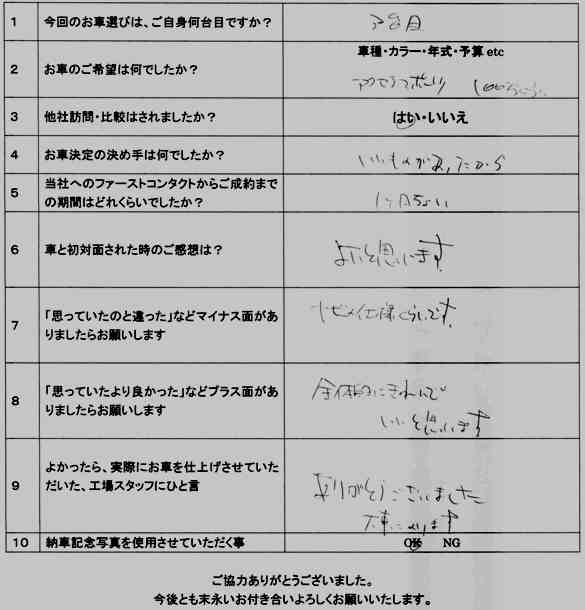 1 今回のお車選びは、ご自身何台目ですか？ 3台目
車種・カラー・年式・予算 etc
2 お車のご希望は何でしたか？
3 他社訪問・比較はされましたか？ はい・いいえ
4 お車決定の決め手は何でしたか？ いいものがあったから
5 当社へのファーストコンタクトからご成約まで
の期間はどれくらいでしたか？ 1ヶ月ちょい
6 車と初対面された時のご感想は？ よいと思います。
7 「思っていたのと違った」などマイナス面があ
りましたらお願いします 仕様くらいです。
8 「思っていたより良かった」などプラス面があ
りましたらお願いします 全体的にきれいで
いいと思います
9 よかったら、実際にお車を仕上げさせていた
だいた、工場スタッフにひと言 ありがとうございました
大事にのります
10 納車記念写真を使用させていただく事 OK NG
ご協力ありがとうございました。
今後とも末永いお付き合いよろしくお願いいたします。